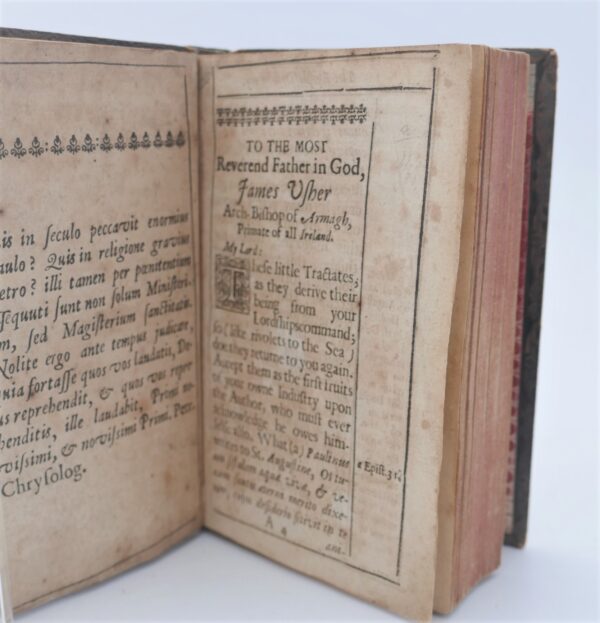 is in seculo peccavit enormius
aulo? Quis in religione gravius
etro? illi tamen per pœnitentiam
sequuti sunt non solum Ministeri-
m, sed Magisterium sanctitatis.
Nolite ergo ante tempus judicare,
uia fortasse quos vos laudatis, De-
us reprehendit, & quos vos repre-
henditis, ille laudabit, Primi no-
vissimi, & novissimi Primi. Petr.
Chrysolog.
TO THE MOST
Reverend Father in God,
James Usher
Arch-Bishop of Armagh,
Primate of all Ireland.
My Lord:
These little Tractates,
as they derive their
being from your
Lordships command;
so (like rivolets to the Sea)
doe they returne to you again.
Accept them as the first fruits
of your owne Industry upon
the Author, who must ever
acknowledge he owes him-
selfe also. What (a) Paulinus
writes to St. Augustine, Os tu-
um fistulam aquæ vivæ, & ve-
nam fontis æterni merito dixe-
rim, cujus desiderio sitivit in te
a Epist. 31.
A
ani-